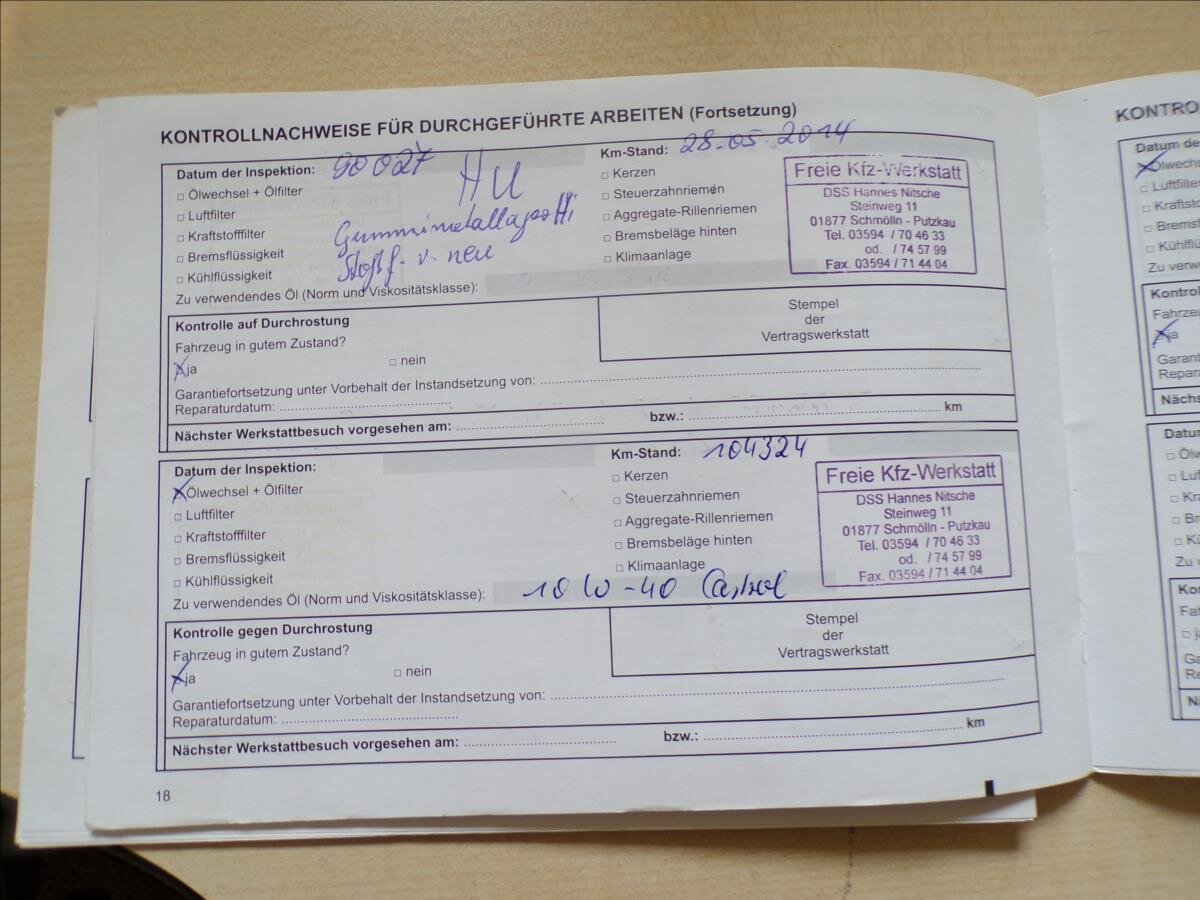 KONTROLLNACHWEISE FÜR DURCHGEFÜHRTE ARBEITEN (Fortsetzung)
Datum der Inspektion: 90027 HU
Km-Stand: 28.05.2014
□ Ölwechsel + Ölfilter
□ Luftfilter
□ Kraftstofffilter
□ Bremsflüssigkeit
□ Kühlflüssigkeit
Stoßf. v. neu
□ Kerzen
□ Steuerzahnriemen
□ Aggregate-Rillenriemen
□ Bremsbeläge hinten
□ Klimaanlage
Freie Kfz-Werkstatt
DSS Hannes Nitsche
Steinweg 11
01877 Schmölln - Putzkau
Tel. 03594 / 70 46 33
od. / 74 57 99
Fax. 03594 / 71 44 04
Zu verwendendes Öl (Norm und Viskositätsklasse):
Kontrolle auf Durchrostung
Fahrzeug in gutem Zustand?
ja □ nein
Stempel
der
Vertragswerkstatt
Garantiefortsetzung unter Vorbehalt der Instandsetzung von:
Reparaturdatum:
Nächster Werkstattbesuch vorgesehen am: bzw.: km
Datum der Inspektion:
Km-Stand: 104324
Ölwechsel + Ölfilter
□ Luftfilter
□ Kraftstofffilter
□ Bremsflüssigkeit
□ Kühlflüssigkeit
□ Kerzen
□ Steuerzahnriemen
□ Aggregate-Rillenriemen
□ Bremsbeläge hinten
□ Klimaanlage
Freie Kfz-Werkstatt
DSS Hannes Nitsche
Steinweg 11
01877 Schmölln - Putzkau
Tel. 03594 / 70 46 33
od. / 74 57 99
Fax. 03594 / 71 44 04
Zu verwendendes Öl (Norm und Viskositätsklasse): 10 W-40 Castrol
Kontrolle gegen Durchrostung
Fahrzeug in gutem Zustand?
ja □ nein
Stempel
der
Vertragswerkstatt
Garantiefortsetzung unter Vorbehalt der Instandsetzung von:
Reparaturdatum:
Nächster Werkstattbesuch vorgesehen am: bzw.: km
18
KONTRO
Datum de
Ölwechs
□ Luftfilter
□ Kraftsto
□ Bremsf
□ Kühlfl
Zu verw
Kontrol
Fahrze
ja
Garant
Repara
Nächs
Datu
□ Ölw
□ Luf
□ Kra
□ Br
□ Kü
Zu v
Ko
Fa
□ j
Ga
Re
N